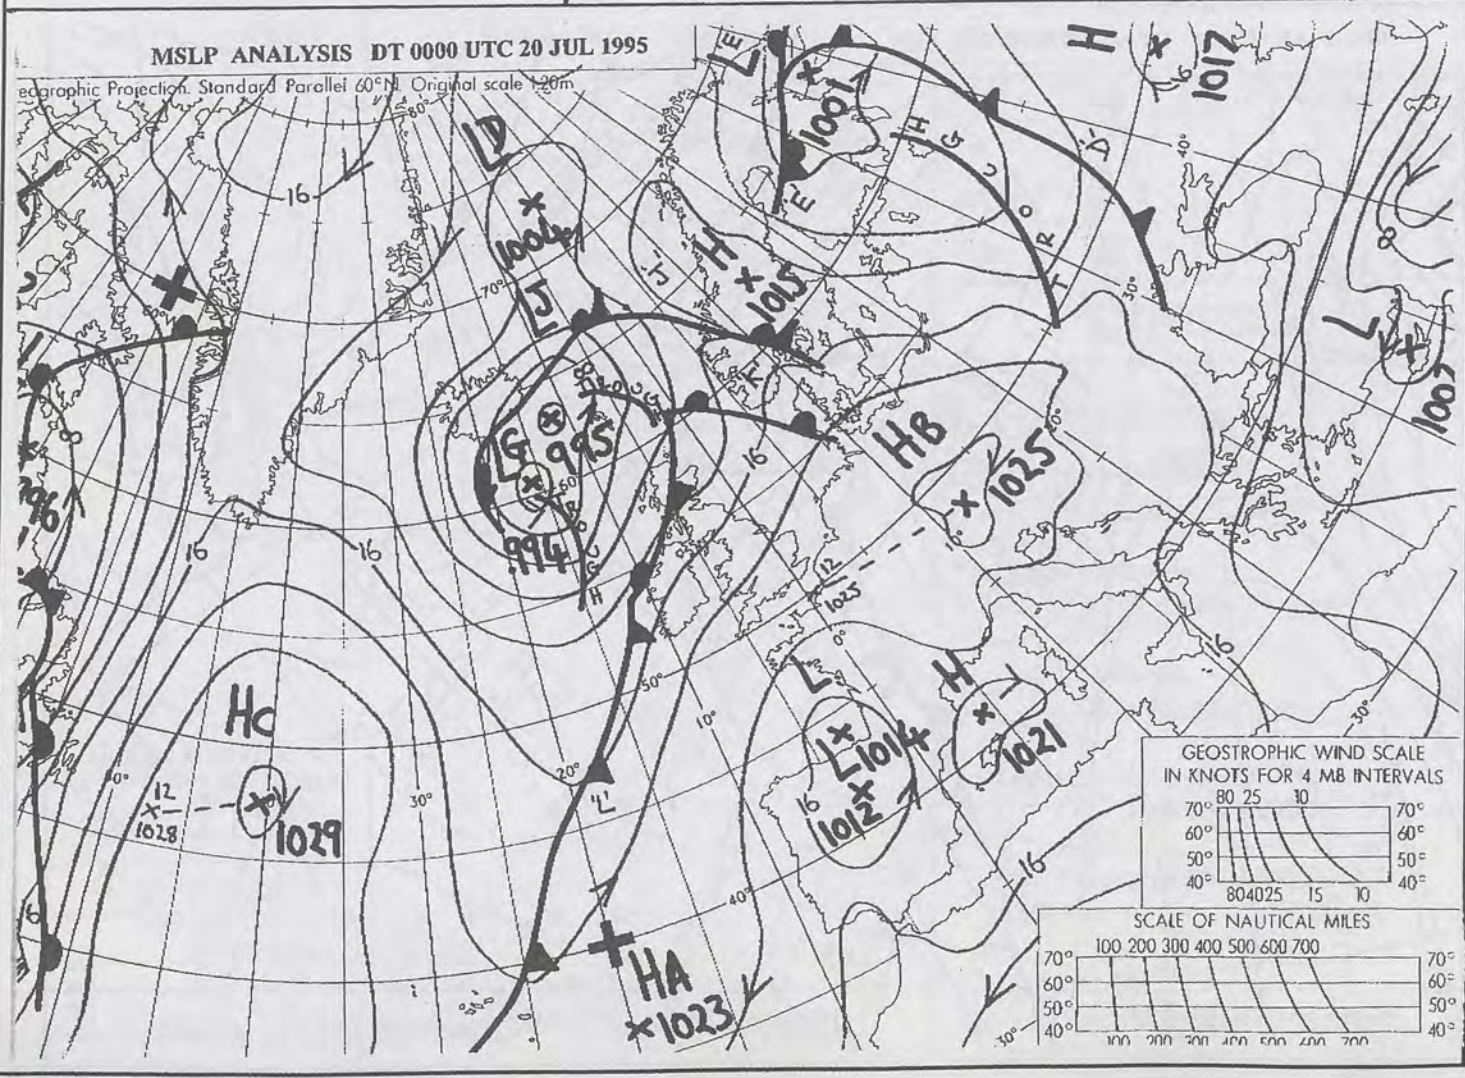 MSLP ANALYSIS DT 0000 UTC 20 JUL 1995
eographic Projection. Standard Parallel 60°N. Original scale 1:20m
80°
LE
1001
H
1017
16
H
G
U
O
R
T
'D'
40°
'E'
LD
1004
16
70°
LJ
'J'
H
1015
30°
8
L
1007
60°
8
LG
995
60°
994
T
R
O
U
G
H
'K'
16
HB
1025
12
1025
0°
16
16
16
HC
12
1028
1029
30°
20°
50°
10°
'L'
L
L1014
16
1012
H
1021
40°
16
30°
HA
1023
30°
GEOSTROPHIC WIND SCALE
IN KNOTS FOR 4 MB INTERVALS
80 25 10
70° 70°
60° 60°
50° 50°
40° 40°
80 40 25 15 10
SCALE OF NAUTICAL MILES
100 200 300 400 500 600 700
70° 70°
60° 60°
50° 50°
40° 40°
100 200 300 400 500 600 700